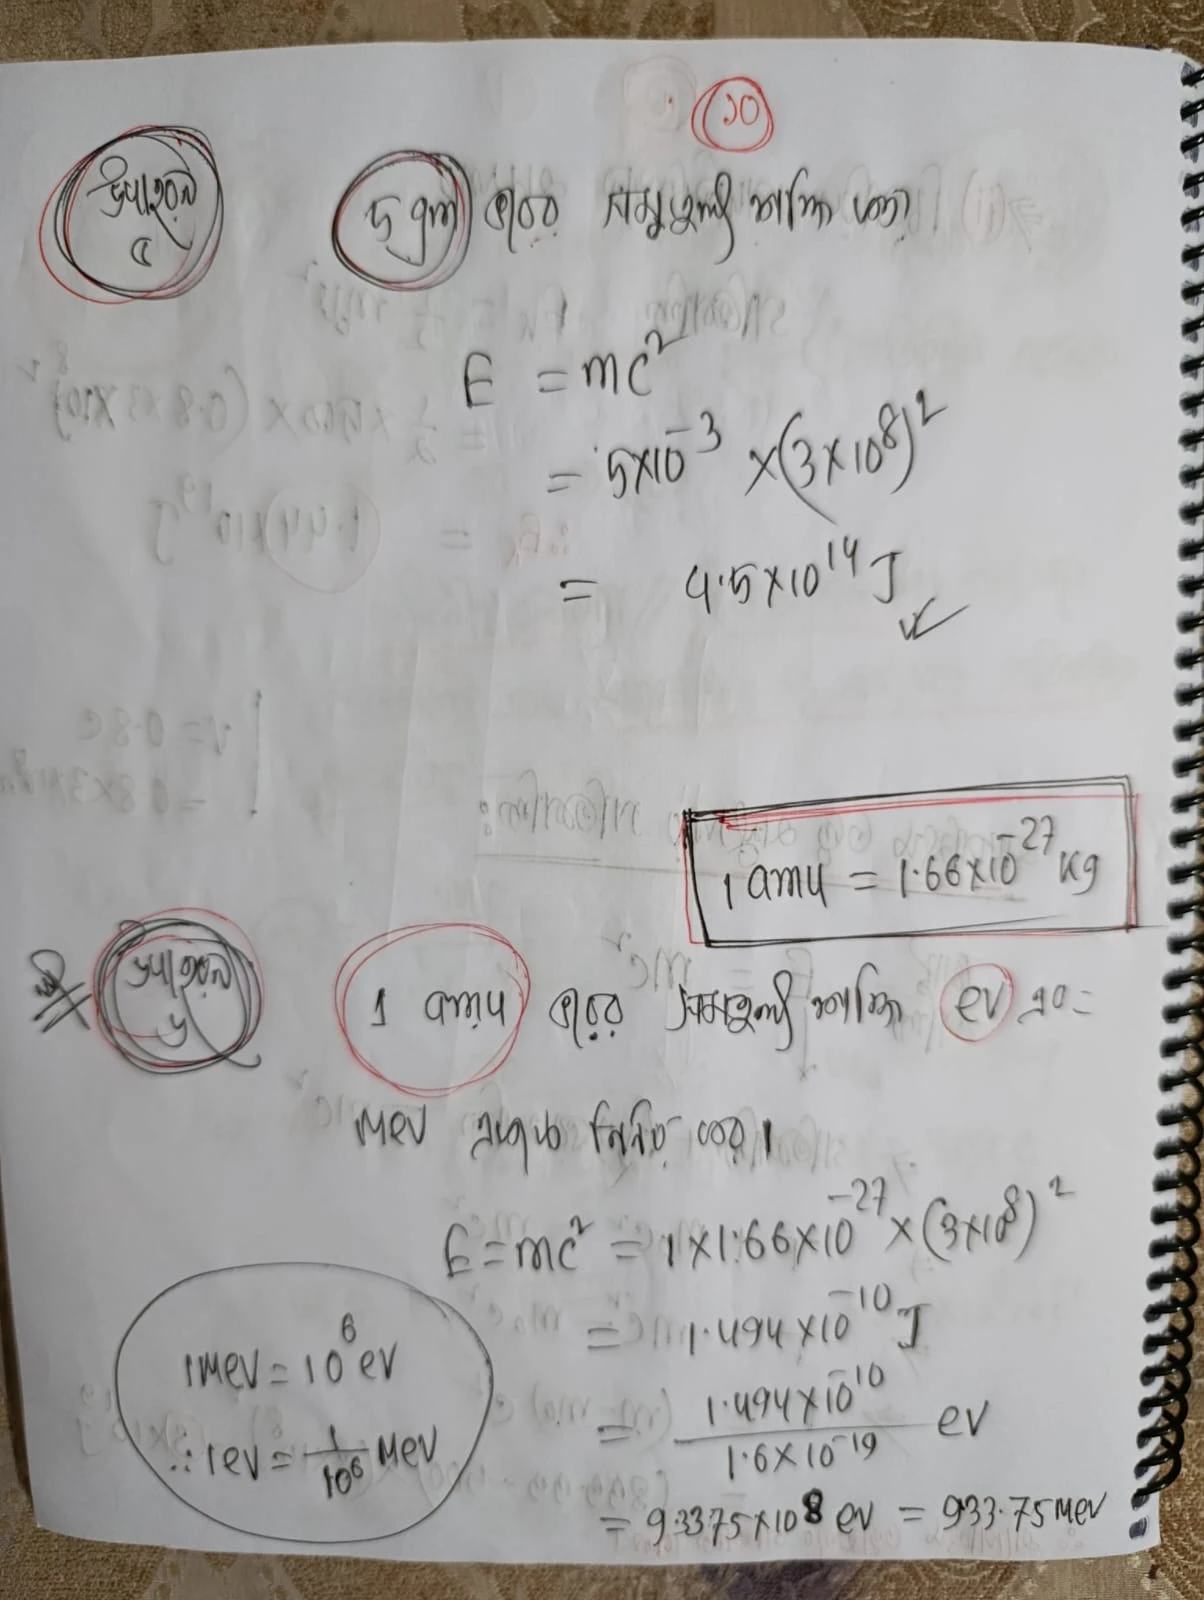 ১০
উদাহরন ১
5 gm ভরের সমতুল্য শক্তি কত?
E = mc²
= 5×10⁻³ ×(3×10⁸)²
= 4.5×10¹⁴ J
1 amu = 1.66×10⁻²⁷ kg
উদাহরন ২
1 amu ভরের সমতুল্য শক্তিকে ev এবং
Mev এককে নির্ণয় কর।
E = mc² = 1×1.66×10⁻²⁷×(3×10⁸)²
= 1.494×10⁻¹⁰ J
= 1.494×10⁻¹⁰ / 1.6×10⁻¹⁹ ev
= 9.3375×10⁸ ev = 933.75 Mev
1Mev = 10⁶ ev
∴ 1ev = 1/10⁶ Mev